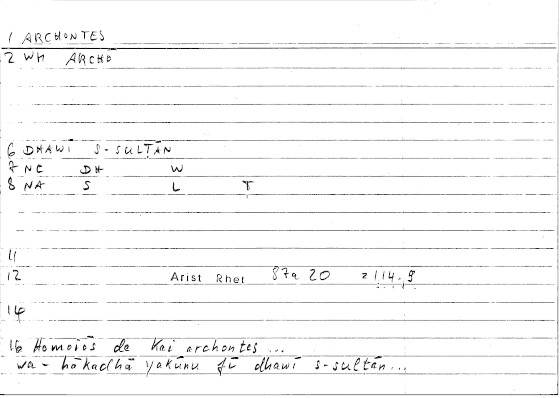 1 ARCHONTES
2 WH ARCHO
6 DHAWĪ S-SULṬĀN
7 NC DH W
8 NA S L Ṭ
11
12 Arist Rhet 87a 20 = 114.9
14
16 Homoiōs de kai archontes...
wa-hākadhā yakūnu fī dhawī s-sulṭān...